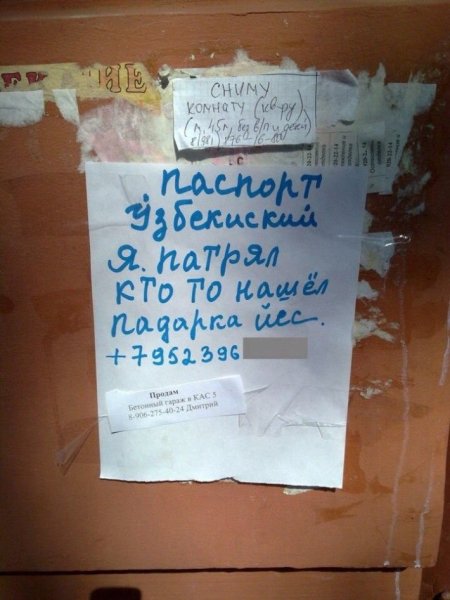 СНИМУ
КОМНАТУ (кв-ру)
ПАСПОРТ
Ўзбекиский
Я. ПАТРЯЛ
КТО ТО НАШЁЛ
ПАДАРКА ЙЕС.
+7952396
Продам
Бетонный гараж в КАС 5
8-906-275-40-24 Дмитрий